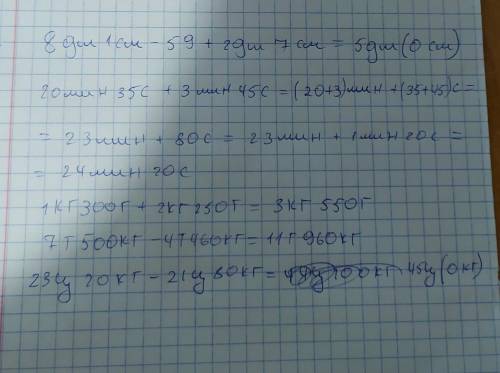 8дм 1см - 59 + 2дм 7см = 5дм (0 см)
20мин 35с + 3мин 45с = (20+3)мин + (35+45)с =
= 23мин + 80с = 23мин + 1мин 20с =
= 24мин 20с
1кг 300г + 2кг 250г = 3кг 550г
7т 500кг - 4т 460кг = 11т 960кг
23ц 20кг - 21ц 80кг = 45ц (0кг)